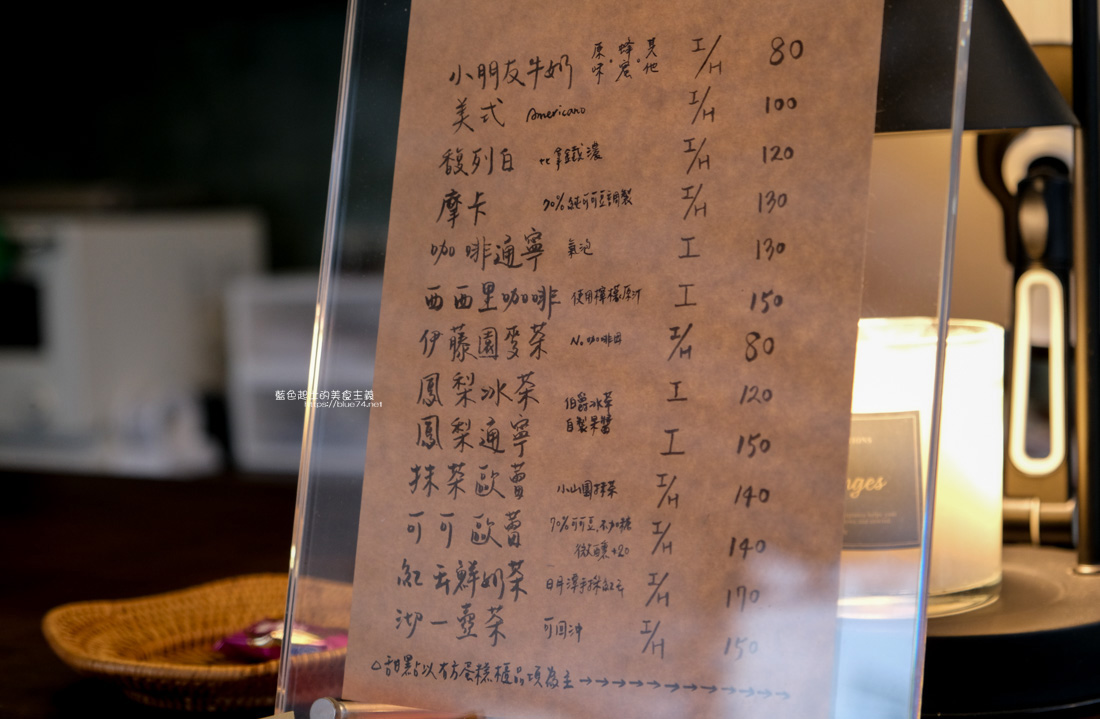 小朋友牛奶 原味、蜂蜜、其他 I/H 80
美式 Americano I/H 100
馥列白 比拿鐵濃 I/H 120
摩卡 70%純可可豆調製 I/H 130
咖啡通寧 氣泡 I 130
西西里咖啡 使用檸檬原汁 I 150
伊藤園麥茶 No咖啡因 I/H 80
鳳梨冰茶 伯爵冰茶 I 120
鳳梨通寧 自製果醬 I 150
抹茶歐蕾 小山園抹茶 I/H 140
可可歐蕾 70%可可豆.不加糖 I/H 140
微醺+20
紅玉鮮奶茶 日月潭手採紅玉 I/H 170
沏一壺茶 可回沖 I/H 150
△甜點以右方蛋糕櫃品項為主→→→→→→→→→→→→→
藍色起士的美食主義
https://blue74.net